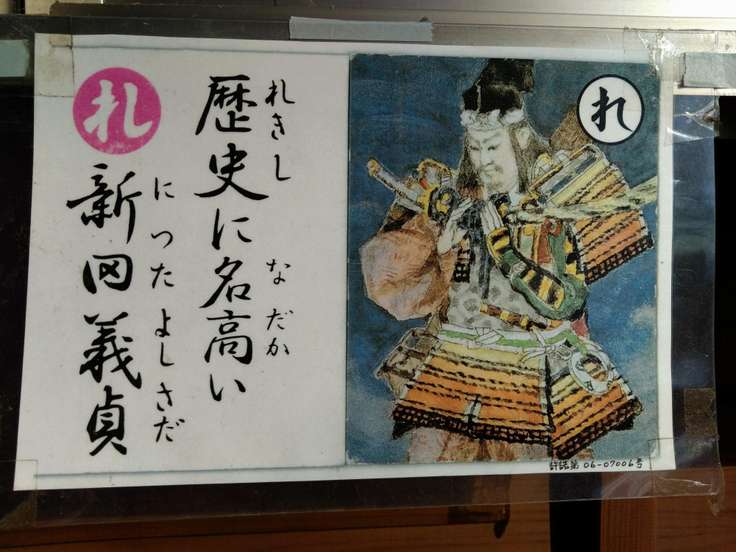 れきし
歴史に名高い
なだか
にったよしさだ
新田義貞
れ
れ
許諾第06-07006号